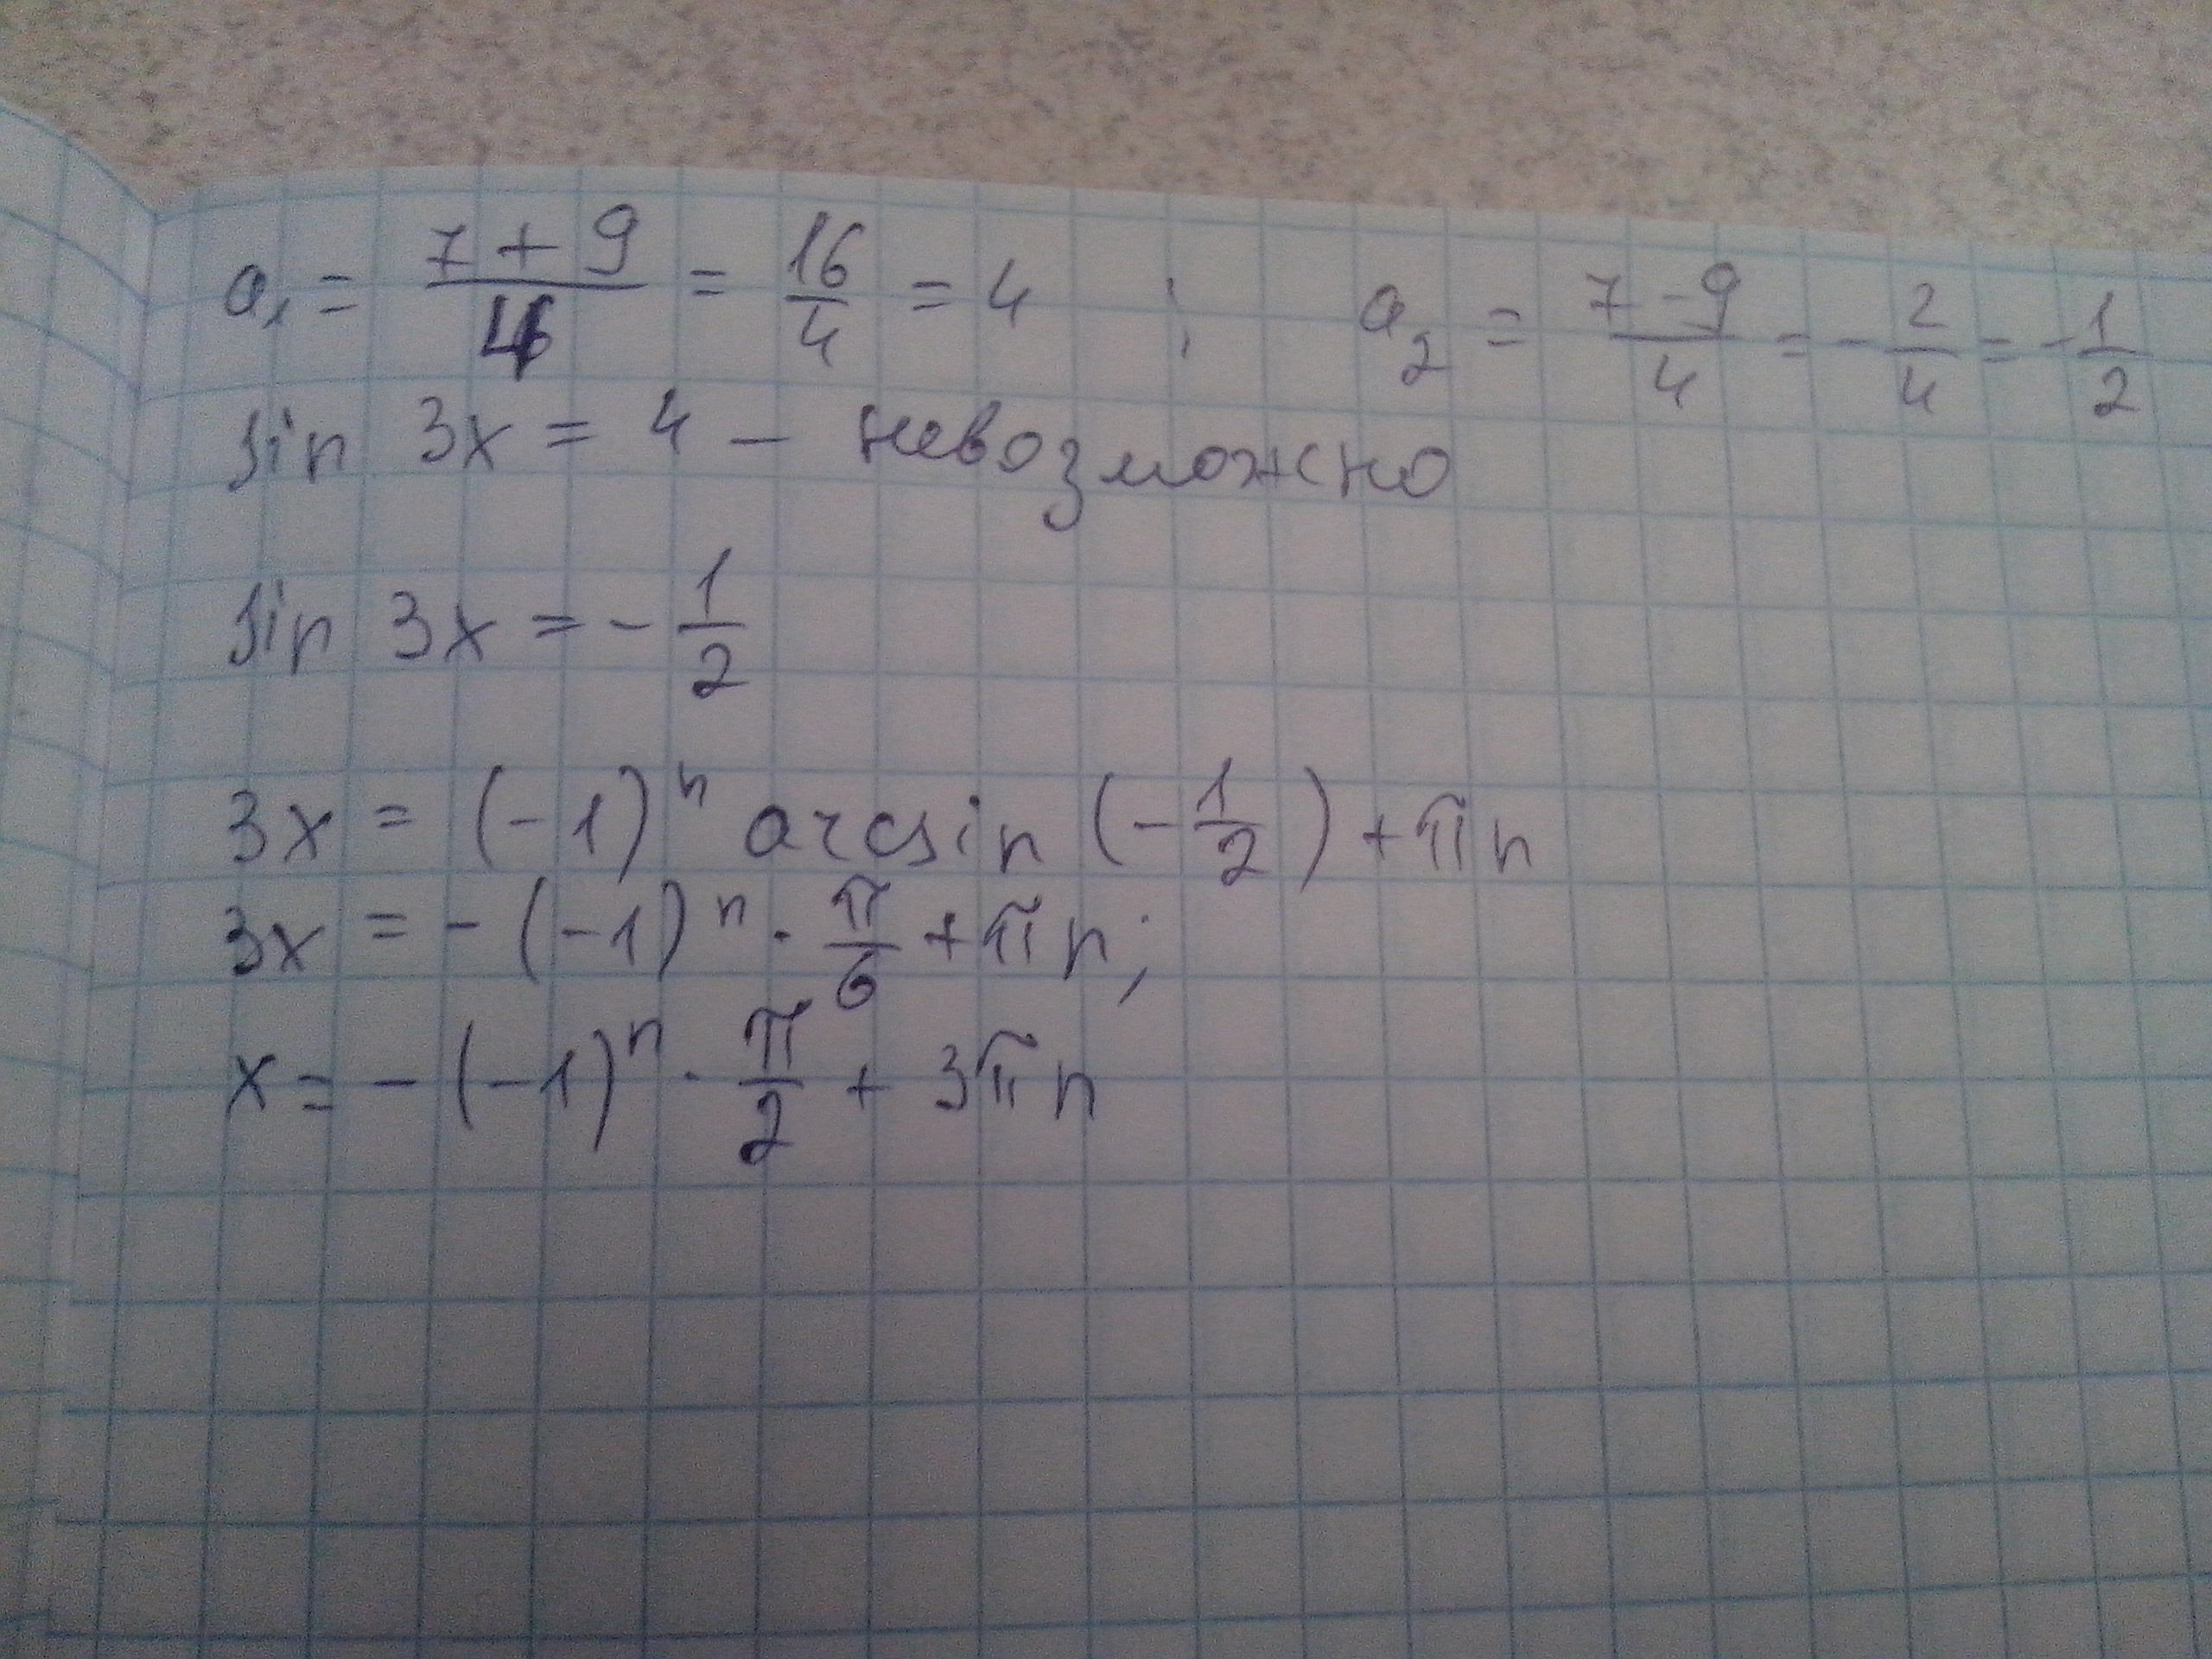 a₁ = (7 + 9)/4 = 16/4 = 4 ; a₂ = (7 - 9)/4 = - 2/4 = - 1/2
sin 3x = 4 – невозможно
sin 3x = - 1/2
3x = (-1)ⁿ arcsin (- 1/2) + πn
3x = - (-1)ⁿ · π/6 + πn;
x = - (-1)ⁿ · π/2 + 3πn